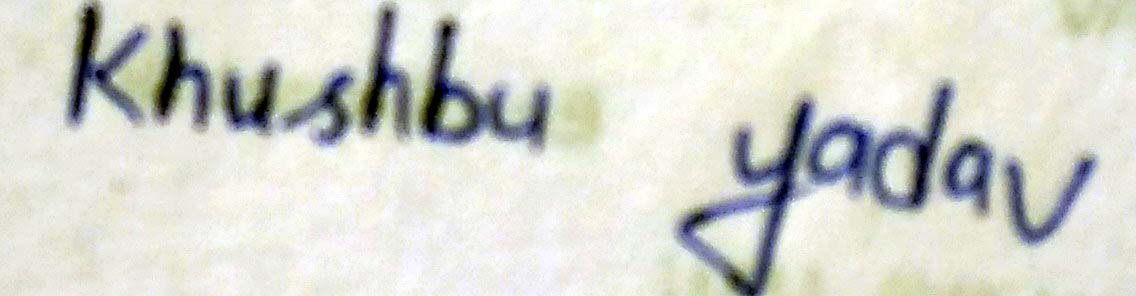 Khushbu yadav